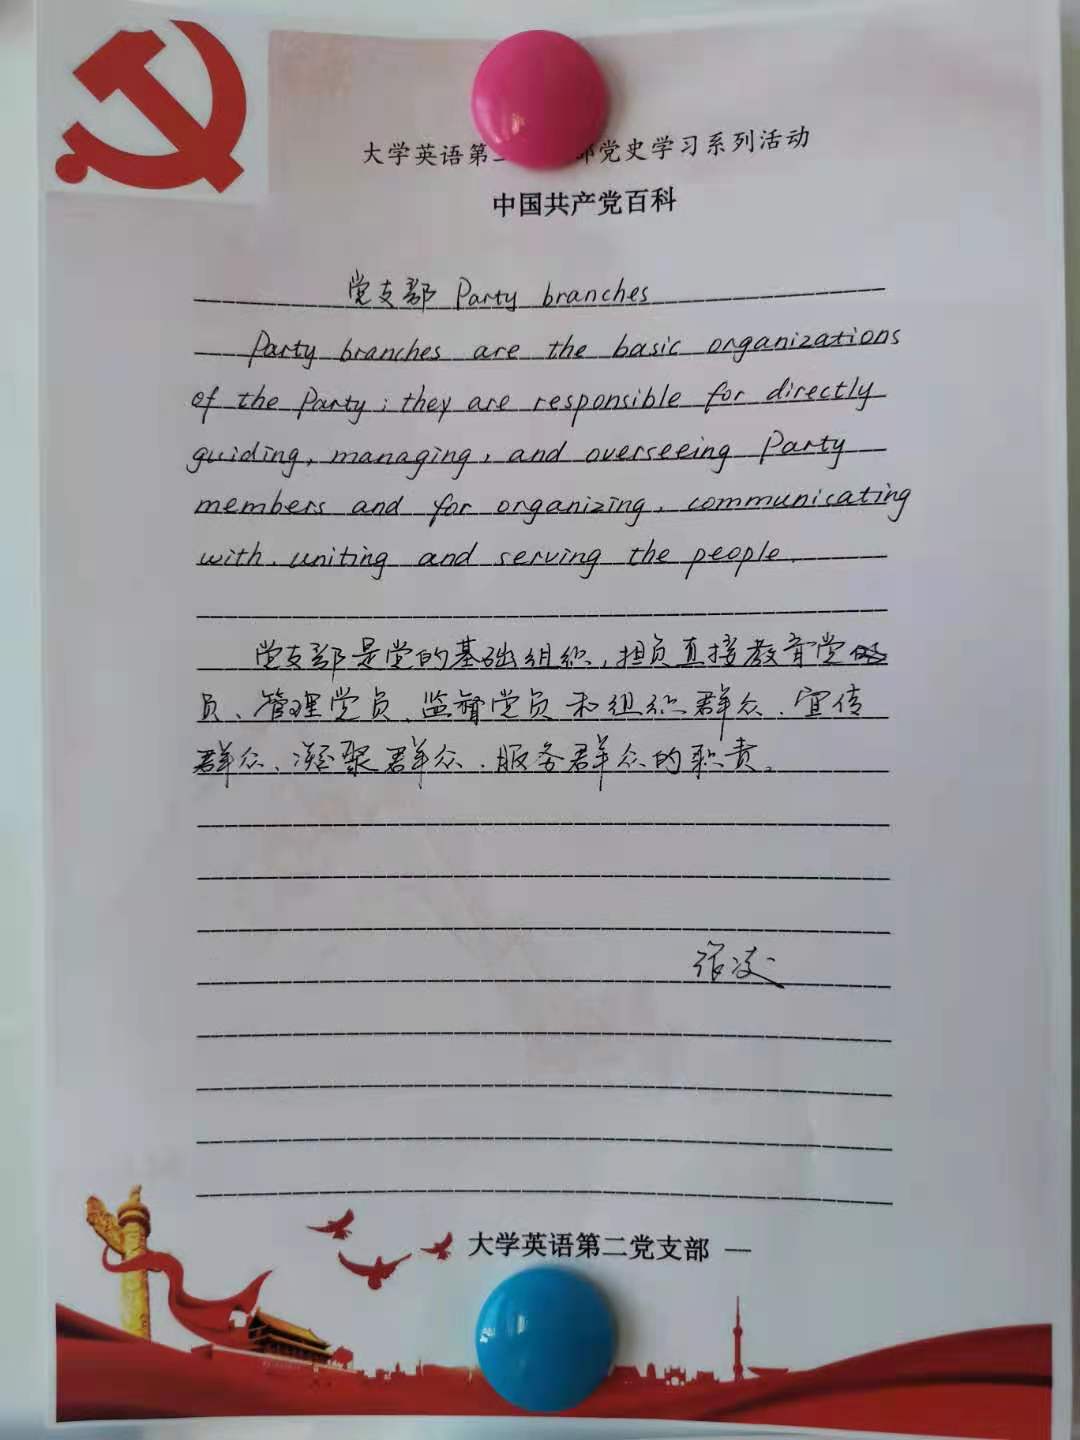 大学英语第二 部党史学习系列活动
中国共产党百科
党支部 Party branches
Party branches are the basic organizations
of the Party; they are responsible for directly
guiding, managing, and overseeing Party
members and for organizing, communicating
with, uniting and serving the people.
党支部是党的基础组织，担负直接教育党
员、管理党员、监督党员和组织群众、宣传
群众、凝聚群众、服务群众的职责。
张凌
大学英语第二党支部 —